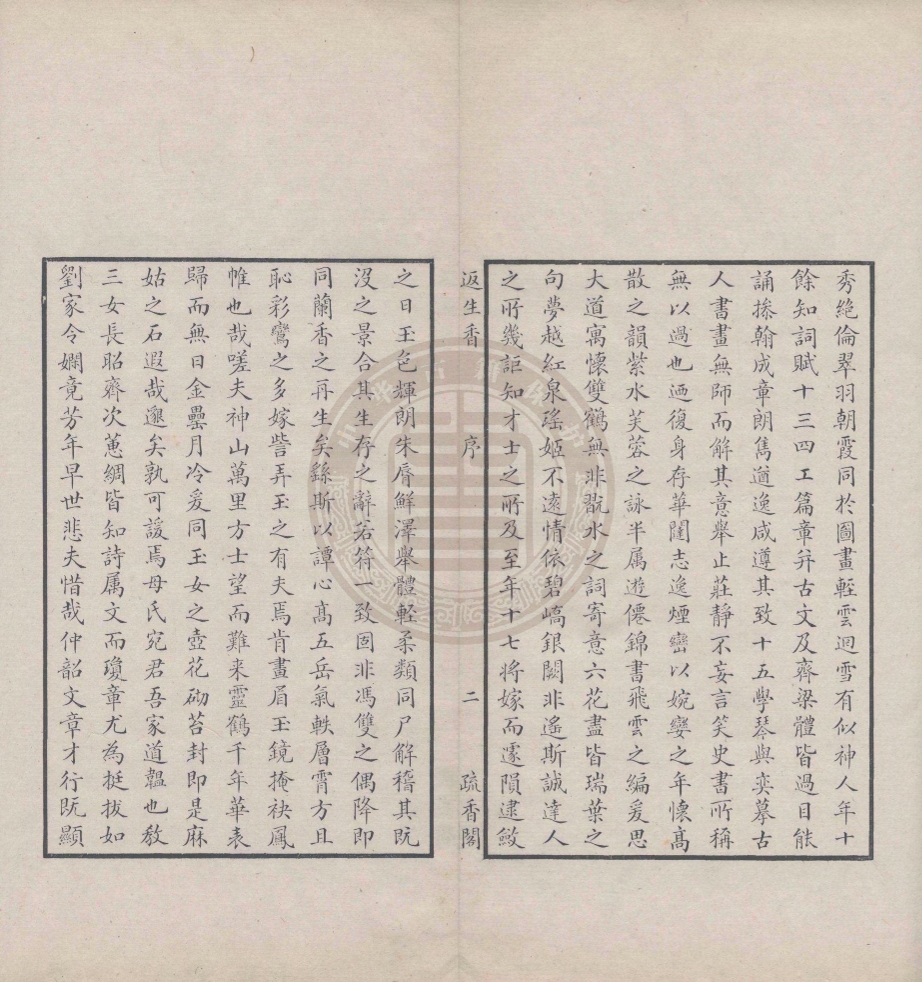 秀絶倫翠羽朝霞同於圖畫輕雲迴雪有似神人年十
餘知詞賦十三四工篇章并古文及齊梁體皆過目能
誦搽翰成章朗雋遒逸咸遵其致十五學琴與奕摹古
人書畫無師而解其意舉止莊靜不妄言笑史書所稱
無以過也迺復身存華閨志逸煙巒以婉孌之年懷髙
散之韻紫水芙蓉之詠半属遊僊錦書飛雲之編爰思
大道寓懷雙鶴無非翫水之詞寄意六花盡皆瑞葉之
句夢越紅泉瑤姬不遠情依碧嶠銀闕非遙斯誠達人
之所幾詎知才士之所及至年十七将嫁而遂隕逮斂
返生香 序 二 疏香閣
之日玉色輝朗朱唇鮮澤舉體輕柔類同尸解稽其既
沒之景合其生存之辭若符一致固非馮雙之偶降即
同蘭香之再生矣繇斯以譚心髙五岳氣軼層霄方且
恥彩鸞之多嫁訾弄玉之有夫焉肯畫眉玉鏡掩袂鳳
帷也哉嗟夫神山萬里方士望而難来靈鶴千年華表
歸而無日金罍月冷爰同玉女之壺花砌苔封即是麻
姑之石遐哉邈矣孰可諼焉母氏宛君吾家道韞也教
三女長昭齊次蕙綢皆知詩属文而瓊章尤為挺拔如
劉家令嫻竟芳年早世悲夫惜哉仲韶文章才行既顯